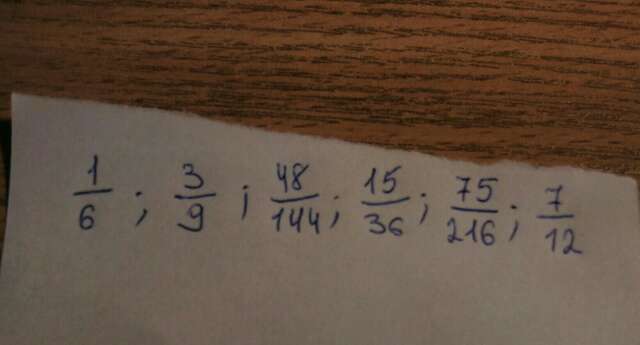 1/6 ; 3/9 ; 48/144 ; 15/36 ; 75/216 ; 7/12